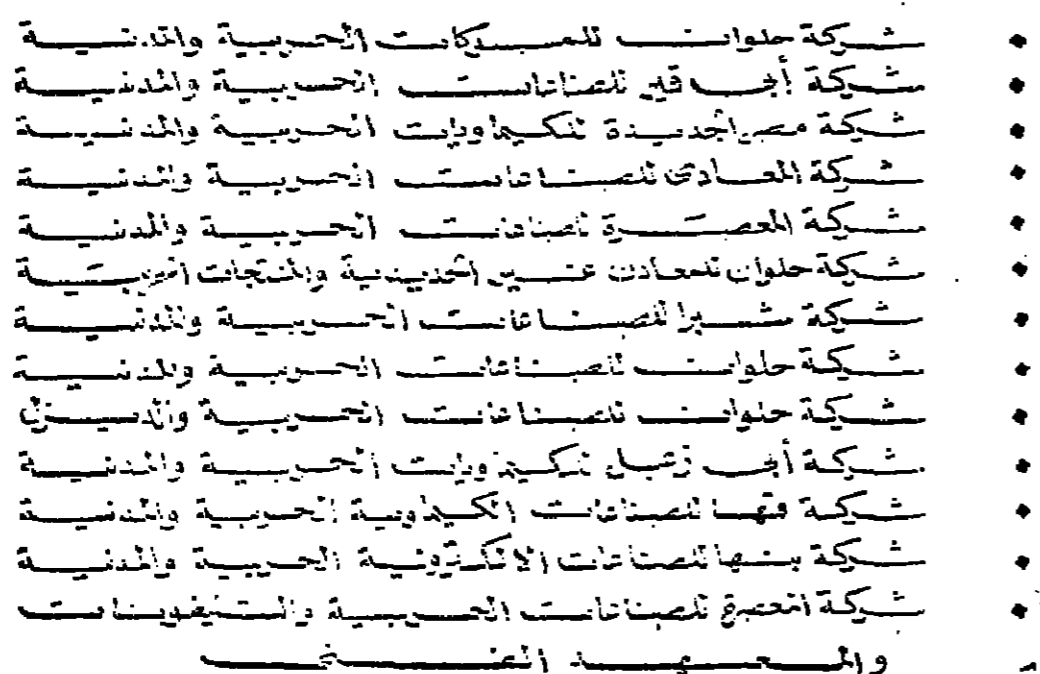 شركة حلوان للمسبوكات الحربية والمدنية
شركة أبى قير للصناعات الحربية والمدنية
شركة مصر الجديدة للكيماويات الحربية والمدنية
شركة المعادى للصناعات الحربية والمدنية
شركة المعصرة للصناعات الحربية والمدنية
شركة حلوان للمعادن غير الحديدية والمنتجات الحربية
شركة شبرا للصناعات الحربية والمدنية
شركة حلوان للصناعات الحربية والمدنية
شركة حلوان للصناعات الحربية والديزل
شركة أبى زعبل للكيماويات الحربية والمدنية
شركة قها للصناعات الكيماوية الحربية والمدنية
شركة بنها للصناعات الالكترونية الحربية والمدنية
شركة المعصرة للصناعات الحربية والتليفونات
والمعهد الفنى